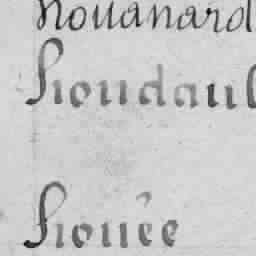 Houanard
Houdaul
Houée